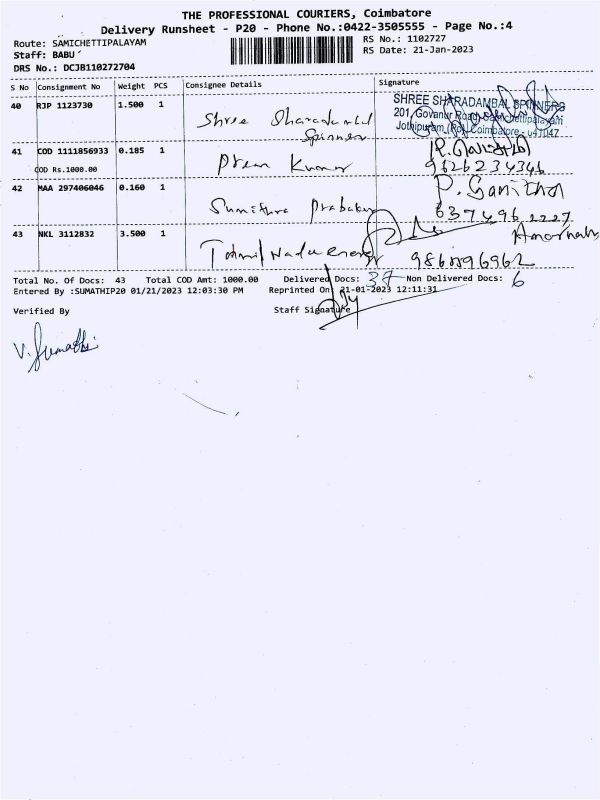 THE PROFESSIONAL COURIERS, Coimbatore
Delivery Runsheet - P20 - Phone No.:0422-3505555 - Page No.:4
Route: SAMICHETTIPALAYAM RS No.: 1102727
Staff: BABU RS Date: 21-Jan-2023
DRS No.: DCJB110272704
S No Consignment No Weight PCS Consignee Details Signature
40 RJP 1123730 1.500 1 Shree Sharadambal Spinners
SHREE SHARADAMBAL SPINNERS
201, Govanur Road, Samichettipalayam
Jothipuram (Po), Coimbatore - 641047
41 COD 1111856933 0.185 1 Prem Kumar
COD Rs.1000.00 9626234346
42 MAA 297406046 0.160 1 Sumithra Prabakar
637496 2227
43 NKL 3112832 3.500 1 Tamil Nadu
Total No. Of Docs: 43 Total COD Amt: 1000.00 Delivered Docs: 37 Non Delivered Docs: 6
Entered By :SUMATHIP20 01/21/2023 12:03:30 PM Reprinted On: 21-01-2023 12:11:31
Verified By Staff Signature
V. Sumathi